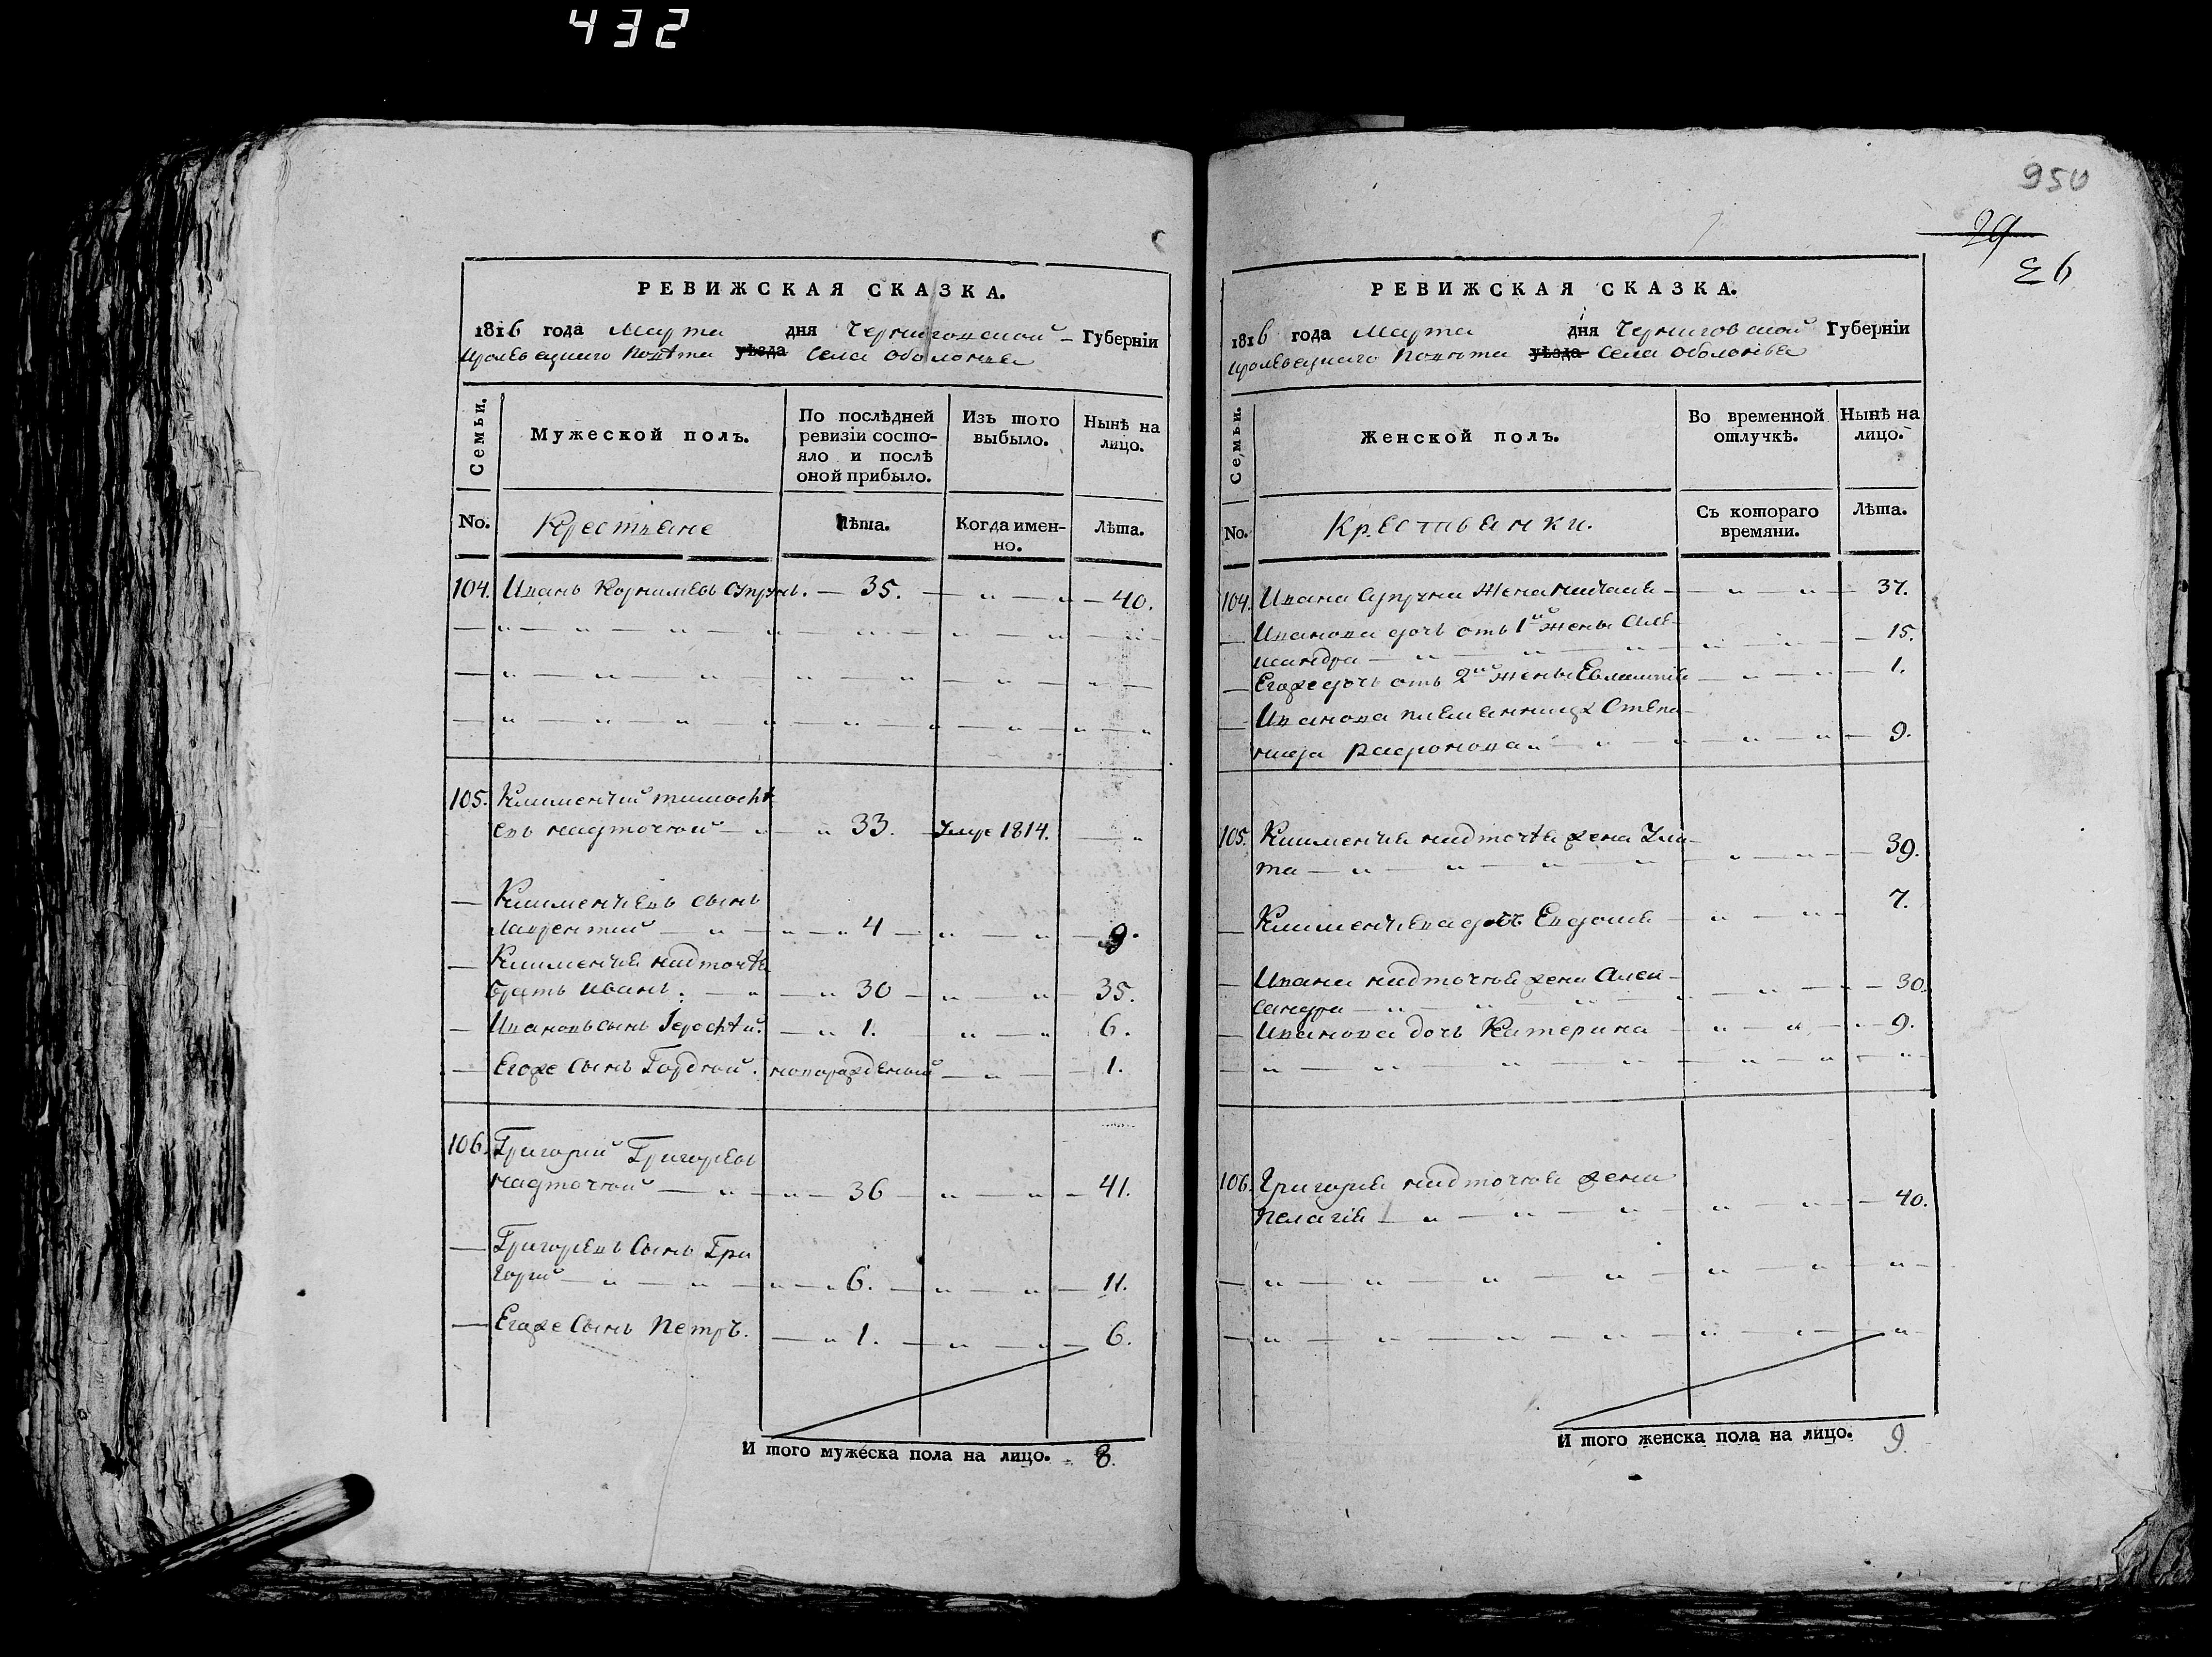 432
РЕВИЖСКАЯ СКАЗКА.
1816 года Марта дня Черниговской Губерніи
Кролевецкого Повѣта уѣзда Села Оболонья
Семьи.
Мужеской полъ.
По послѣдней ревизіи состо-
яло и послѣ
оной прибыло.
Изъ того
выбыло.
Нынѣ на
лицо.
No.
Крестьяне
Лѣта.
Когда имен-
но.
Лѣта.
104. Иванъ Корнилѣвъ Супрунъ. 35. 40.
105. Климентий тимофѣ
евъ надточий 33. Умре 1814.
Климентиевъ сынъ
Лаврентий 4 9.
Климентия надточѣя
братъ иванъ. 30 35.
Ивановъ сынъ Ерофѣй. 1. 6.
Егоже Сынъ Гордѣй. новорожденый 1.
106. Григорий Григорьевъ
надточий 36 41.
Григорьевъ Сынъ Гри
горий 6. 11.
Егоже Сынъ Петръ. 1. 6.
И того мужеска пола на лицо. 8.
950
29
26
РЕВИЖСКАЯ СКАЗКА.
1816 года Марта дня Черниговской Губерніи
Кролевецкого Повѣта уѣзда Села Оболонья
Семьи.
Женской полъ.
Во временной
отлучкѣ.
Нынѣ на
лицо.
No.
Крестьянки.
Съ котораго
времяни.
Лѣта.
104. Ивана Супруна Жена 37.
Иванова дочь отъ 1й жены Але-
ксандра 15.
Егоже дочь отъ 2й жены 1.
Иванова племянница Степа-
нида 9.
105. Климентия надточѣя жена Ули-
та 39.
Климентиева дочъ Евдокия 7.
Ивана надточия жена Алек-
сандра 30.
Иванова дочь Катерина 9.
106. Григория надточия жена
Пелагия 40.
И того женска пола на лицо. 9.